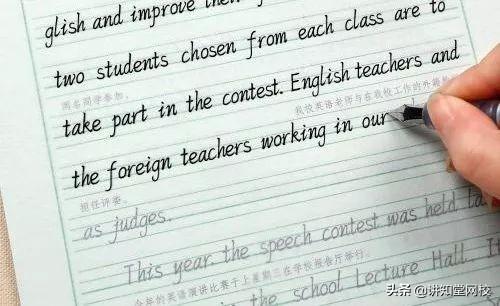 glish and improve their
two students chosen from each class are to
两名同学参加。
take part in the contest. English teachers and
我校英语老师与在我校工作的外籍
the foreign teachers working in our
担任评委。
as judges.
This year the speech contest was held
今年的英语演讲比赛于上星期三在学校报告厅举行。
in the school Lecture Hall. I
头条 @讲知堂网校